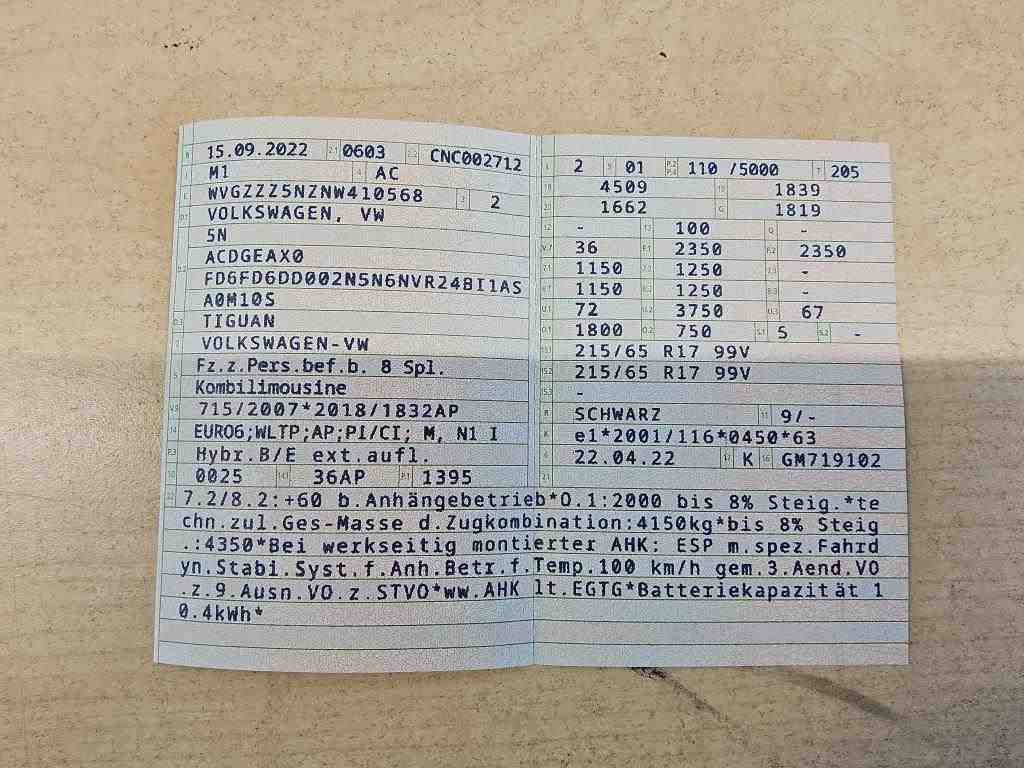 15.09.2022 2.1 0603 2.2 CNC002712
M1 4 AC
WVGZZZ5NZNW410568 3 2
VOLKSWAGEN, VW
5N
ACDGEAX0
FD6FD6DD002N5N6NVR24BI1AS
A0M10S
TIGUAN
VOLKSWAGEN-VW
Fz.z.Pers.bef.b. 8 Spl.
Kombilimousine
V.9 715/2007*2018/1832AP
14 EURO6;WLTP;AP;PI/CI; M, N1 I
P.3 Hybr.B/E ext.aufl.
10 0025 14.1 36AP P.1 1395
L 2 9 01 P.2 P.4 110 /5000 T 205
18 4509 19 1839
20 1662 G 1819
12 - 13 100 Q -
V.7 36 F.1 2350 F.2 2350
7.1 1150 7.2 1250 7.3 -
8.1 1150 8.2 1250 8.3 -
U.1 72 U.2 3750 U.3 67
O.1 1800 O.2 750 S.1 5 S.2 -
15.1 215/65 R17 99V
15.2 215/65 R17 99V
15.3 -
R SCHWARZ 11 9/-
K e1*2001/116*0450*63
6 22.04.22 17 K 16 GM719102
21
22 7.2/8.2:+60 b.Anhängebetrieb*O.1:2000 bis 8% Steig.*te
chn.zul.Ges-Masse d.Zugkombination:4150kg*bis 8% Steig
.:4350*Bei werkseitig montierter AHK: ESP m.spez.Fahrd
yn.Stabi.Syst.f.Anh.Betr.f.Temp.100 km/h gem.3.Aend.VO
.z.9.Ausn.VO.z.STVO*ww.AHK lt.EGTG*Batteriekapazität 1
0.4kWh*